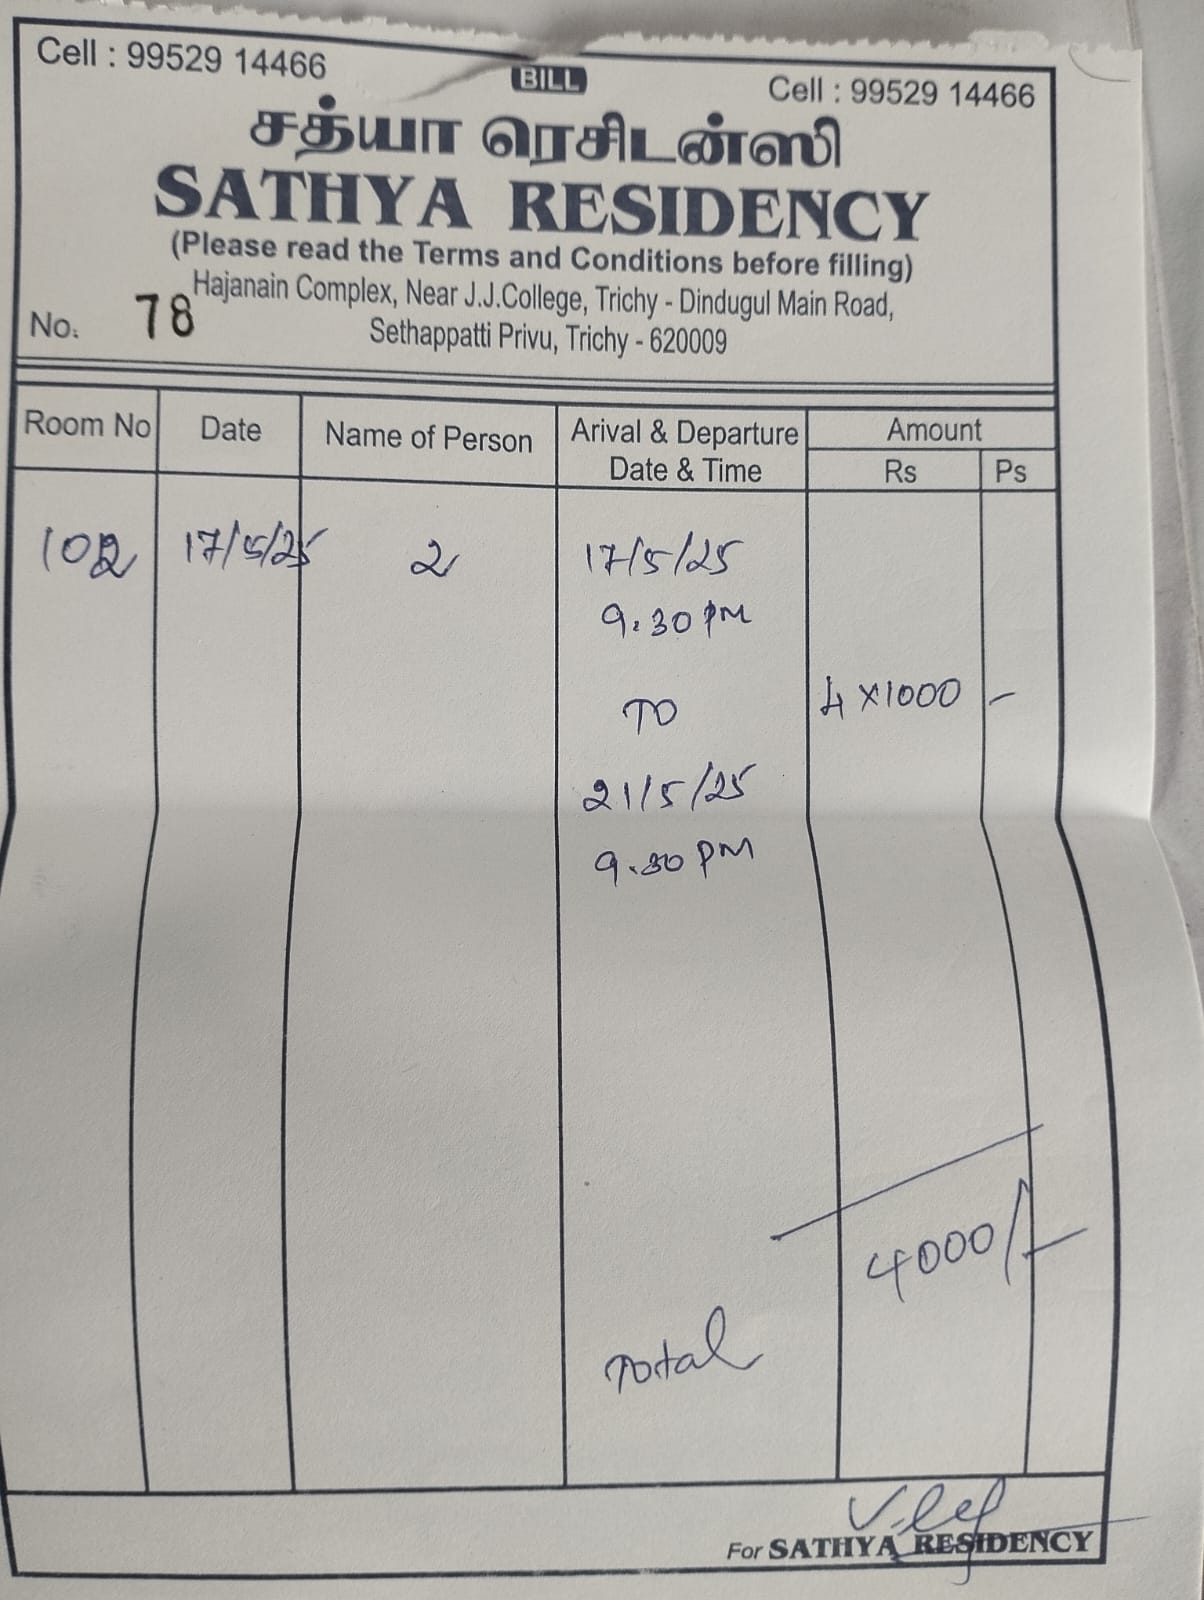 Cell : 99529 14466
BILL
Cell : 99529 14466
சத்யா ரெசிடன்ஸி
SATHYA RESIDENCY
(Please read the Terms and Conditions before filling)
Hajanain Complex, Near J.J.College, Trichy - Dindugul Main Road,
No. 78
Sethappatti Privu, Trichy - 620009
Room No
Date
Name of Person
Arival & Departure
Date & Time
Amount
Rs
Ps
102
17/5/25
2
17/5/25
9.30 PM
TO
4 x 1000 -
21/5/25
9.30 PM
4000/-
Total
For SATHYA RESIDENCY